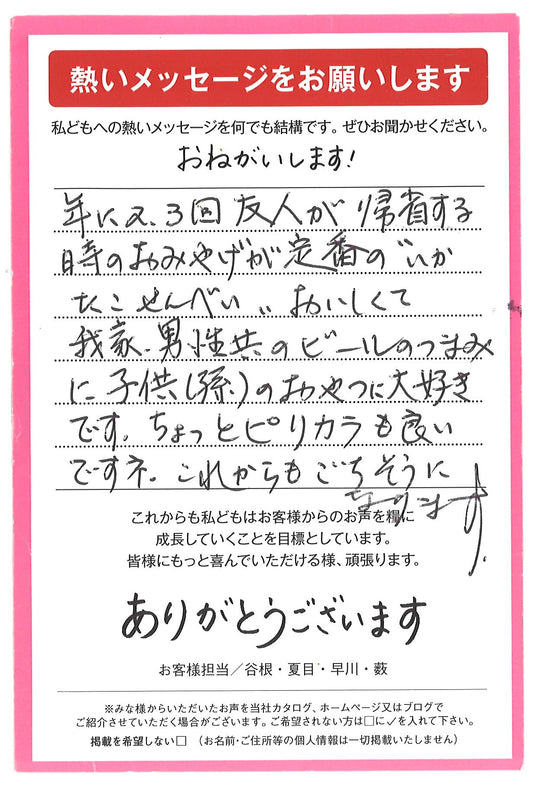 熱いメッセージをお願いします
私どもへの熱いメッセージを何でも結構です。ぜひお聞かせください。
おねがいします!
年に2、3回友人が帰省する
時のおみやげが定番の〝いか
たこせんべい〟おいしくて
我家・男性共のビールのつまみ
に子供(孫)のおやつに大好き
です。ちょっとピリカラも良い
ですネ。これからもごちそうに
なります。
これからも私どもはお客様からのお声を糧に
成長していくことを目標としています。
皆様にもっと喜んでいただける様、頑張ります。
ありがとうございます
お客様担当/谷根・夏目・早川・薮
※みな様からいただいたお声を当社カタログ、ホームページ又はブログで
ご紹介させていただく場合がございます。ご希望されない方は□に✓を入れて下さい。
掲載を希望しない□ (お名前・ご住所等の個人情報は一切掲載いたしません)